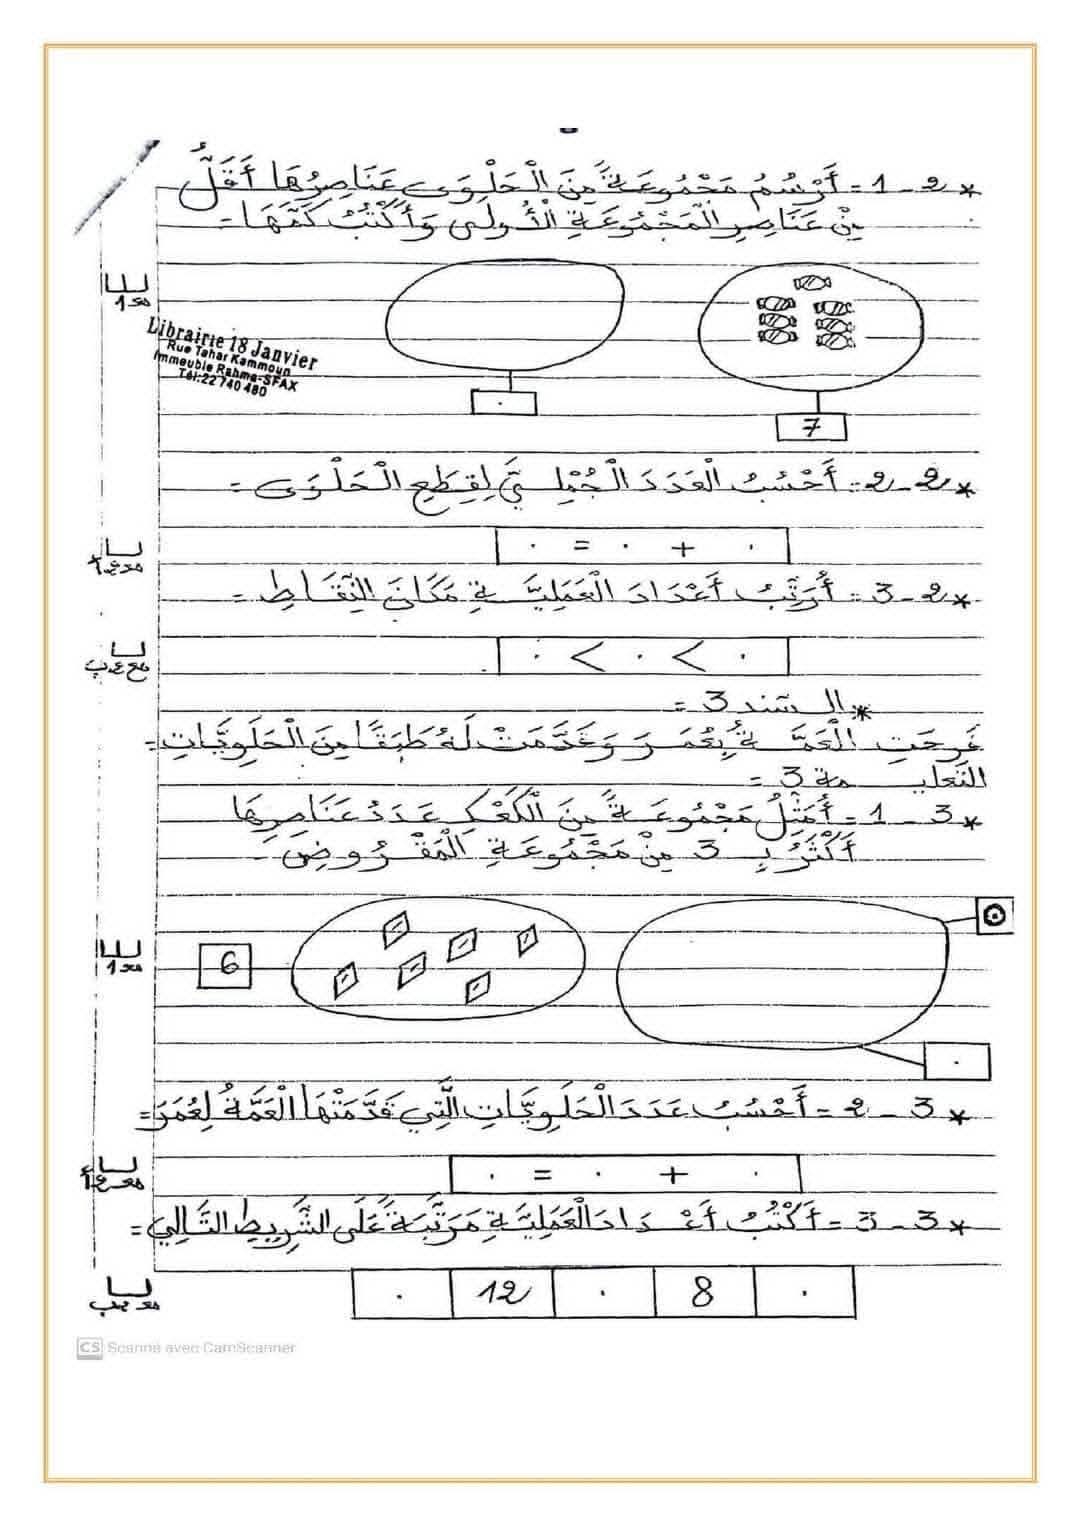 * 2 - 1 - أَرْسُمُ مَجْمُوعَةً مِنَ الْحَلْوَى عَنَاصِرُهَا أَقَلُّ
مِنْ عَنَاصِرِ الْمَجْمُوعَةِ الْأُولَى وَأَكْتُبُ كَمَّهَا -
مع 1
Librairie 18 Janvier
Rue Tahar Kammoun
Immeuble Rahma-SFAX
Tél:22 740 480
.
7
* 2 - 2 - أَحْسُبُ الْعَدَدَ الْجُمْلِيَّ لِقِطَعِ الْحَلْوَى =
. + . = .
* 2 - 3 - أُرَتِّبُ أَعْدَادَ الْعَمَلِيَّةِ فِي مَكَانِ النِّقَاطِ =
. < . < .
* السند 3 =
فَرِحَتِ الْعَمَّةُ بِعُمَرَ وَقَدَّمَتْ لَهُ طَبَقًا مِنَ الْحَلَوِيَّاتِ =
التعليمة 3 =
* 3 - 1 - أُمَثِّلُ مَجْمُوعَةً مِنَ الْكَعْكِ عَدَدُ عَنَاصِرِهَا
أَكْثَرُ بِـ 3 مِنْ مَجْمُوعَةِ الْمَقْرُوضِ -
مع 1
6
.
* 3 - 2 - أَحْسُبُ عَدَدَ الْحَلَوِيَّاتِ الَّتِي قَدَّمَتْهَا الْعَمَّةُ لِعُمَرَ =
. + . = .
* 3 - 3 - أَكْتُبُ أَعْدَادَ الْعَمَلِيَّةِ مُرَتَّبَةً عَلَى الشَّرِيطِ التَّالِي =
. 8 . 12 .
CS Scanné avec CamScanner